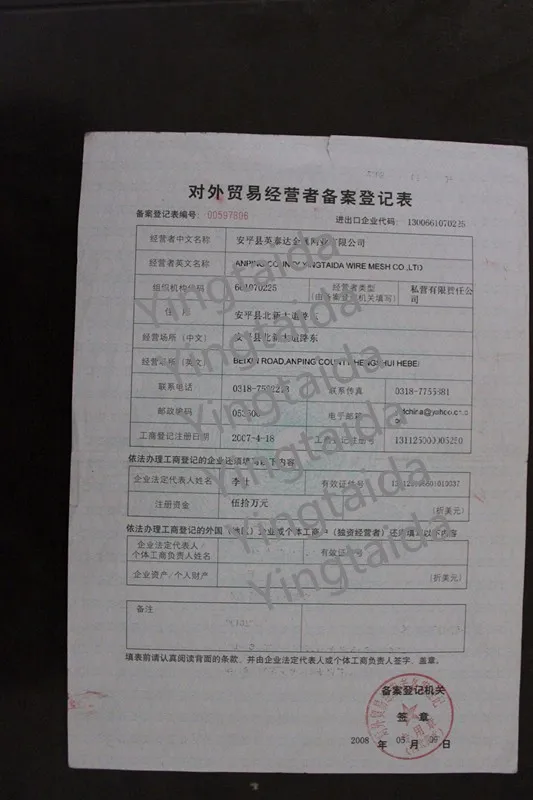 对外贸易经营者备案登记表
备案登记表编号: 00597806
进出口企业代码: 1300661070225
经营者中文名称 安平县英泰达金属网业有限公司
经营者英文名称 ANPING COUNTY YINGTAIDA WIRE MESH CO.,LTD
组织机构代码 661070225 经营者类型 (由备案登记机关填写) 私营有限责任公司
住 所 安平县北新大道路东
经营场所 (中文) 安平县北新大道路东
经营场所 (英文) BEIXIN ROAD,ANPING COUNTY HENGSHUI HEBEI
联系电话 联系传真
邮政编码 053600 电子邮箱
工商登记注册日期 2007-4-18 工商登记注册号
依法办理工商登记的企业还须填写以下内容
企业法定代表人姓名 有效证件号
注册资金 伍拾万元 (折美元)
依法办理工商登记的外国(地区)企业或个体工商户(独资经营者)还须填写以下内容
企业法定代表人/个体工商负责人姓名 有效证件号
企业资产/个人财产 (折美元)
备注
填表前请认真阅读背面的条款,并由企业法定代表人或个体工商负责人签字、盖章。
备案登记机关
签 章
2008 年 05 月 日
Yingtaida
Yingtaida
Yingtaida
Yingtaida
Yingtaida
Yingtaida